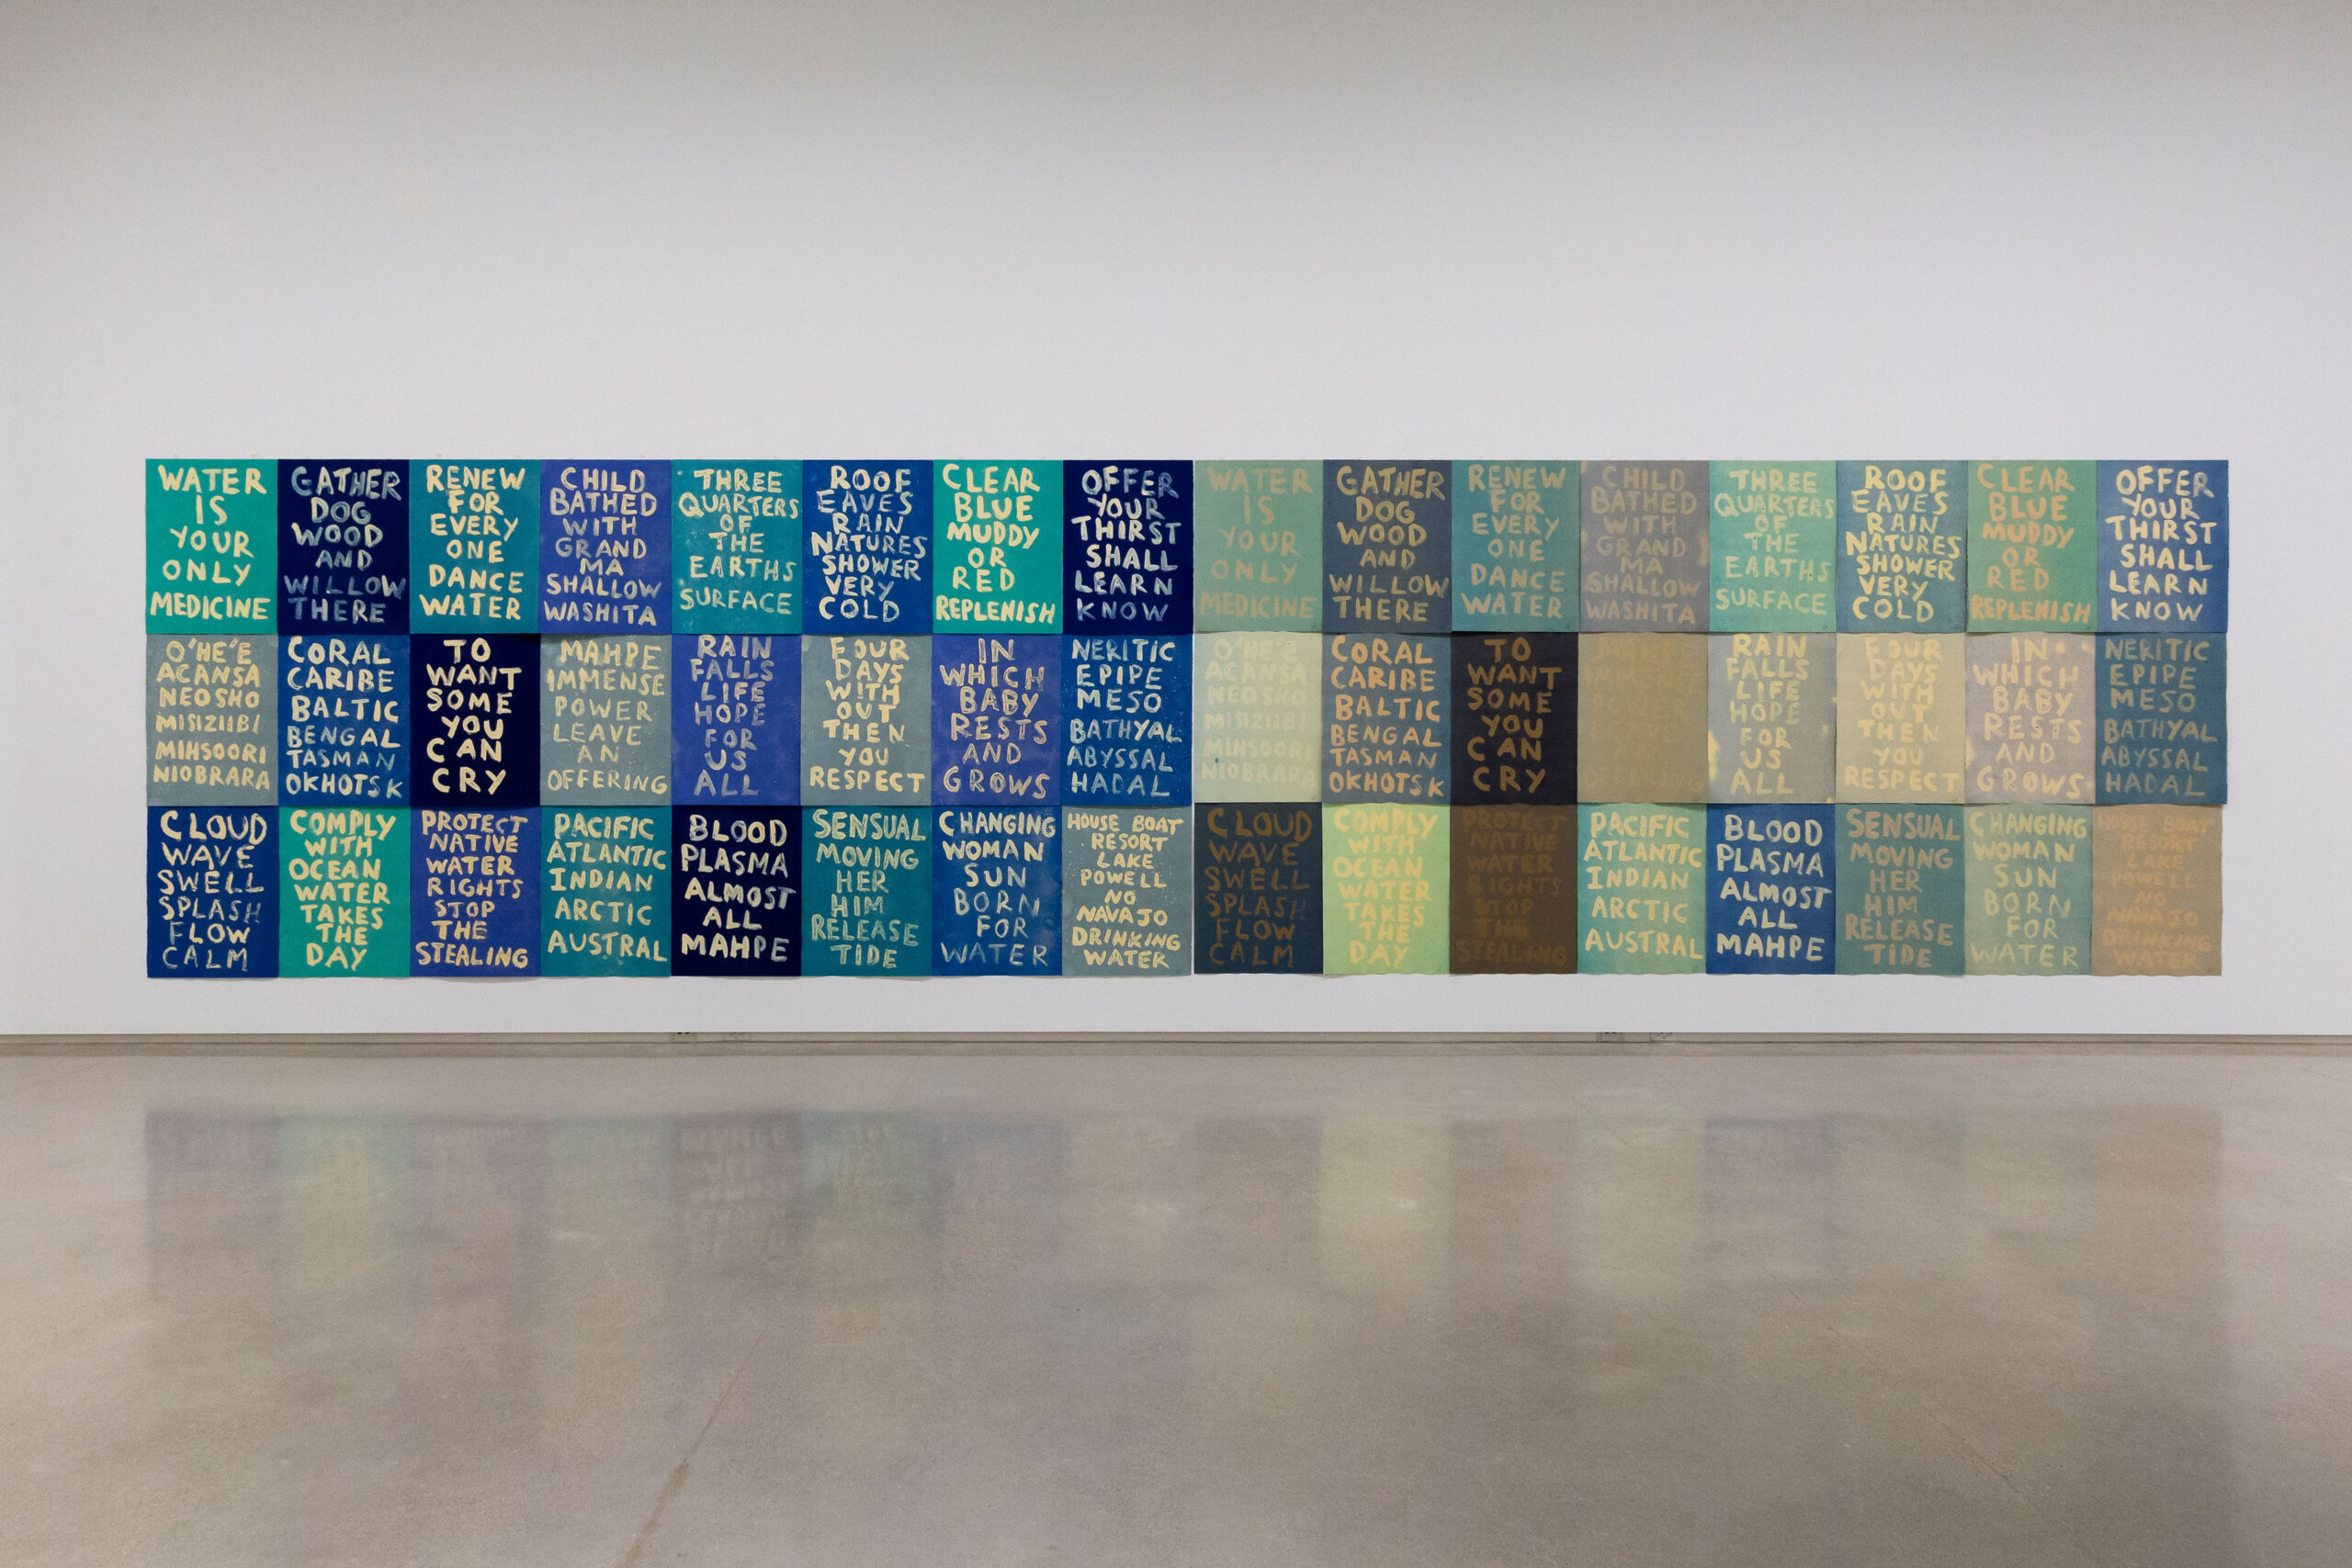 WATER
IS
YOUR
ONLY
MEDICINE
GATHER
DOG
WOOD
AND
WILLOW
THERE
RENEW
FOR
EVERY
ONE
DANCE
WATER
CHILD
BATHED
WITH
GRAND
MA
SHALLOW
WASHITA
THREE
QUARTERS
OF
THE
EARTHS
SURFACE
ROOF
EAVES
RAIN
NATURES
SHOWER
VERY
COLD
CLEAR
BLUE
MUDDY
OR
RED
REPLENISH
OFFER
YOUR
THIRST
SHALL
LEARN
KNOW
O'HE'E
ACANSA
NEOSHO
MISIZIIBI
MIHSOORI
NIOBRARA
CORAL
CARIBE
BALTIC
BENGAL
TASMAN
OKHOTSK
TO
WANT
SOME
YOU
CAN
CRY
MAHPE
IMMENSE
POWER
LEAVE
AN
OFFERING
RAIN
FALLS
LIFE
HOPE
FOR
US
ALL
FOUR
DAYS
WITH
OUT
THEN
YOU
RESPECT
IN
WHICH
BABY
RESTS
AND
GROWS
NERITIC
EPIPE
MESO
BATHYAL
ABYSSAL
HADAL
CLOUD
WAVE
SWELL
SPLASH
FLOW
CALM
COMPLY
WITH
OCEAN
WATER
TAKES
THE
DAY
PROTECT
NATIVE
WATER
RIGHTS
STOP
THE
STEALING
PACIFIC
ATLANTIC
INDIAN
ARCTIC
AUSTRAL
BLOOD
PLASMA
ALMOST
ALL
MAHPE
SENSUAL
MOVING
HER
HIM
RELEASE
TIDE
CHANGING
WOMAN
SUN
BORN
FOR
WATER
HOUSE BOAT
RESORT
LAKE
POWELL
NO
NAVAJO
DRINKING
WATER
WATER
IS
YOUR
ONLY
MEDICINE
GATHER
DOG
WOOD
AND
WILLOW
THERE
RENEW
FOR
EVERY
ONE
DANCE
WATER
CHILD
BATHED
WITH
GRAND
MA
SHALLOW
WASHITA
THREE
QUARTERS
OF
THE
EARTHS
SURFACE
ROOF
EAVES
RAIN
NATURES
SHOWER
VERY
COLD
CLEAR
BLUE
MUDDY
OR
RED
REPLENISH
OFFER
YOUR
THIRST
SHALL
LEARN
KNOW
O'HE'E
ACANSA
NEOSHO
MISIZIIBI
MIHSOORI
NIOBRARA
CORAL
CARIBE
BALTIC
BENGAL
TASMAN
OKHOTSK
TO
WANT
SOME
YOU
CAN
CRY
RAIN
FALLS
LIFE
HOPE
FOR
US
ALL
FOUR
DAYS
WITH
OUT
THEN
YOU
RESPECT
IN
WHICH
BABY
RESTS
AND
GROWS
NERITIC
EPIPE
MESO
BATHYAL
ABYSSAL
HADAL
CLOUD
WAVE
SWELL
SPLASH
FLOW
CALM
COMPLY
WITH
OCEAN
WATER
TAKES
THE
DAY
PROTECT
NATIVE
WATER
RIGHTS
STOP
THE
STEALING
PACIFIC
ATLANTIC
INDIAN
ARCTIC
AUSTRAL
BLOOD
PLASMA
ALMOST
ALL
MAHPE
SENSUAL
MOVING
HER
HIM
RELEASE
TIDE
CHANGING
WOMAN
SUN
BORN
FOR
WATER
HOUSE BOAT
RESORT
LAKE
POWELL
NO
NAVAJO
DRINKING
WATER